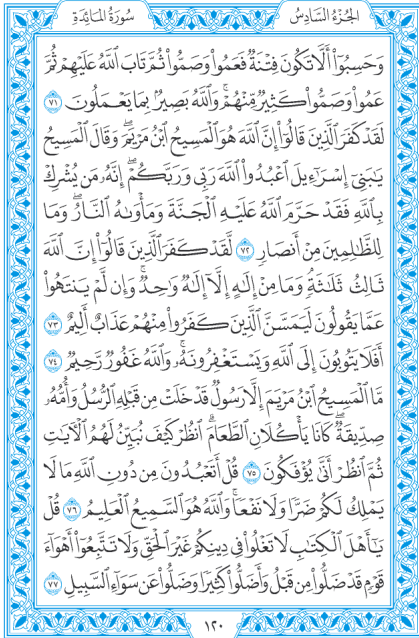 سُورَةُ المَائِدَةِ الجُزْءُ السَّادِسُ
وَحَسِبُوٓا۟ أَلَّا تَكُونَ فِتْنَةٌ فَعَمُوا۟ وَصَمُّوا۟ ثُمَّ تَابَ ٱللَّهُ عَلَيْهِمْ ثُمَّ
عَمُوا۟ وَصَمُّوا۟ كَثِيرٌ مِّنْهُمْ ۚ وَٱللَّهُ بَصِيرٌۢ بِمَا يَعْمَلُونَ ٧١
لَقَدْ كَفَرَ ٱلَّذِينَ قَالُوٓا۟ إِنَّ ٱللَّهَ هُوَ ٱلْمَسِيحُ ٱبْنُ مَرْيَمَ ۖ وَقَالَ ٱلْمَسِيحُ
يَـٰبَنِىٓ إِسْرَٰٓءِيلَ ٱعْبُدُوا۟ ٱللَّهَ رَبِّى وَرَبَّكُمْ ۖ إِنَّهُۥ مَن يُشْرِكْ
بِٱللَّهِ فَقَدْ حَرَّمَ ٱللَّهُ عَلَيْهِ ٱلْجَنَّةَ وَمَأْوَىٰهُ ٱلنَّارُ ۖ وَمَا
لِلظَّـٰلِمِينَ مِنْ أَنصَارٍ ٧٢ لَّقَدْ كَفَرَ ٱلَّذِينَ قَالُوٓا۟ إِنَّ ٱللَّهَ
ثَالِثُ ثَلَـٰثَةٍ ۘ وَمَا مِنْ إِلَـٰهٍ إِلَّآ إِلَـٰهٌ وَٰحِدٌ ۚ وَإِن لَّمْ يَنتَهُوا۟
عَمَّا يَقُولُونَ لَيَمَسَّنَّ ٱلَّذِينَ كَفَرُوا۟ مِنْهُمْ عَذَابٌ أَلِيمٌ ٧٣
أَفَلَا يَتُوبُونَ إِلَى ٱللَّهِ وَيَسْتَغْفِرُونَهُۥ ۚ وَٱللَّهُ غَفُورٌ رَّحِيمٌ ٧٤
مَّا ٱلْمَسِيحُ ٱبْنُ مَرْيَمَ إِلَّا رَسُولٌ قَدْ خَلَتْ مِن قَبْلِهِ ٱلرُّسُلُ وَأُمُّهُۥ
صِدِّيقَةٌ ۖ كَانَا يَأْكُلَانِ ٱلطَّعَامَ ۗ ٱنظُرْ كَيْفَ نُبَيِّنُ لَهُمُ ٱلْـَٔايَـٰتِ
ثُمَّ ٱنظُرْ أَنَّىٰ يُؤْفَكُونَ ٧٥ قُلْ أَتَعْبُدُونَ مِن دُونِ ٱللَّهِ مَا لَا
يَمْلِكُ لَكُمْ ضَرًّا وَلَا نَفْعًا ۚ وَٱللَّهُ هُوَ ٱلسَّمِيعُ ٱلْعَلِيمُ ٧٦ قُلْ
يَـٰٓأَهْلَ ٱلْكِتَـٰبِ لَا تَغْلُوا۟ فِى دِينِكُمْ غَيْرَ ٱلْحَقِّ وَلَا تَتَّبِعُوٓا۟ أَهْوَآءَ
قَوْمٍ قَدْ ضَلُّوا۟ مِن قَبْلُ وَأَضَلُّوا۟ كَثِيرًا وَضَلُّوا۟ عَن سَوَآءِ ٱلسَّبِيلِ ٧٧
١٢٠